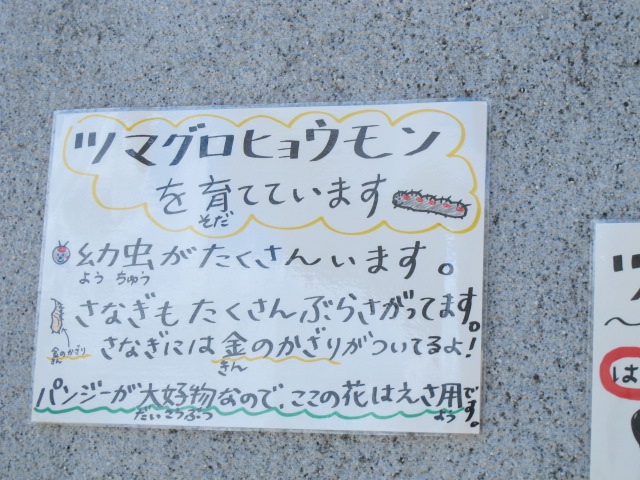 ツマグロヒョウモン
を育てています
そだ
幼虫がたくさんいます。
よう ちゅう
さなぎもたくさんぶらさがってます。
さなぎには金のかざりがついてるよ!
金のかざり
きん
きん
パンジーが大好物なので、ここの花はえさ用です。
だいこうぶつ
よう
は